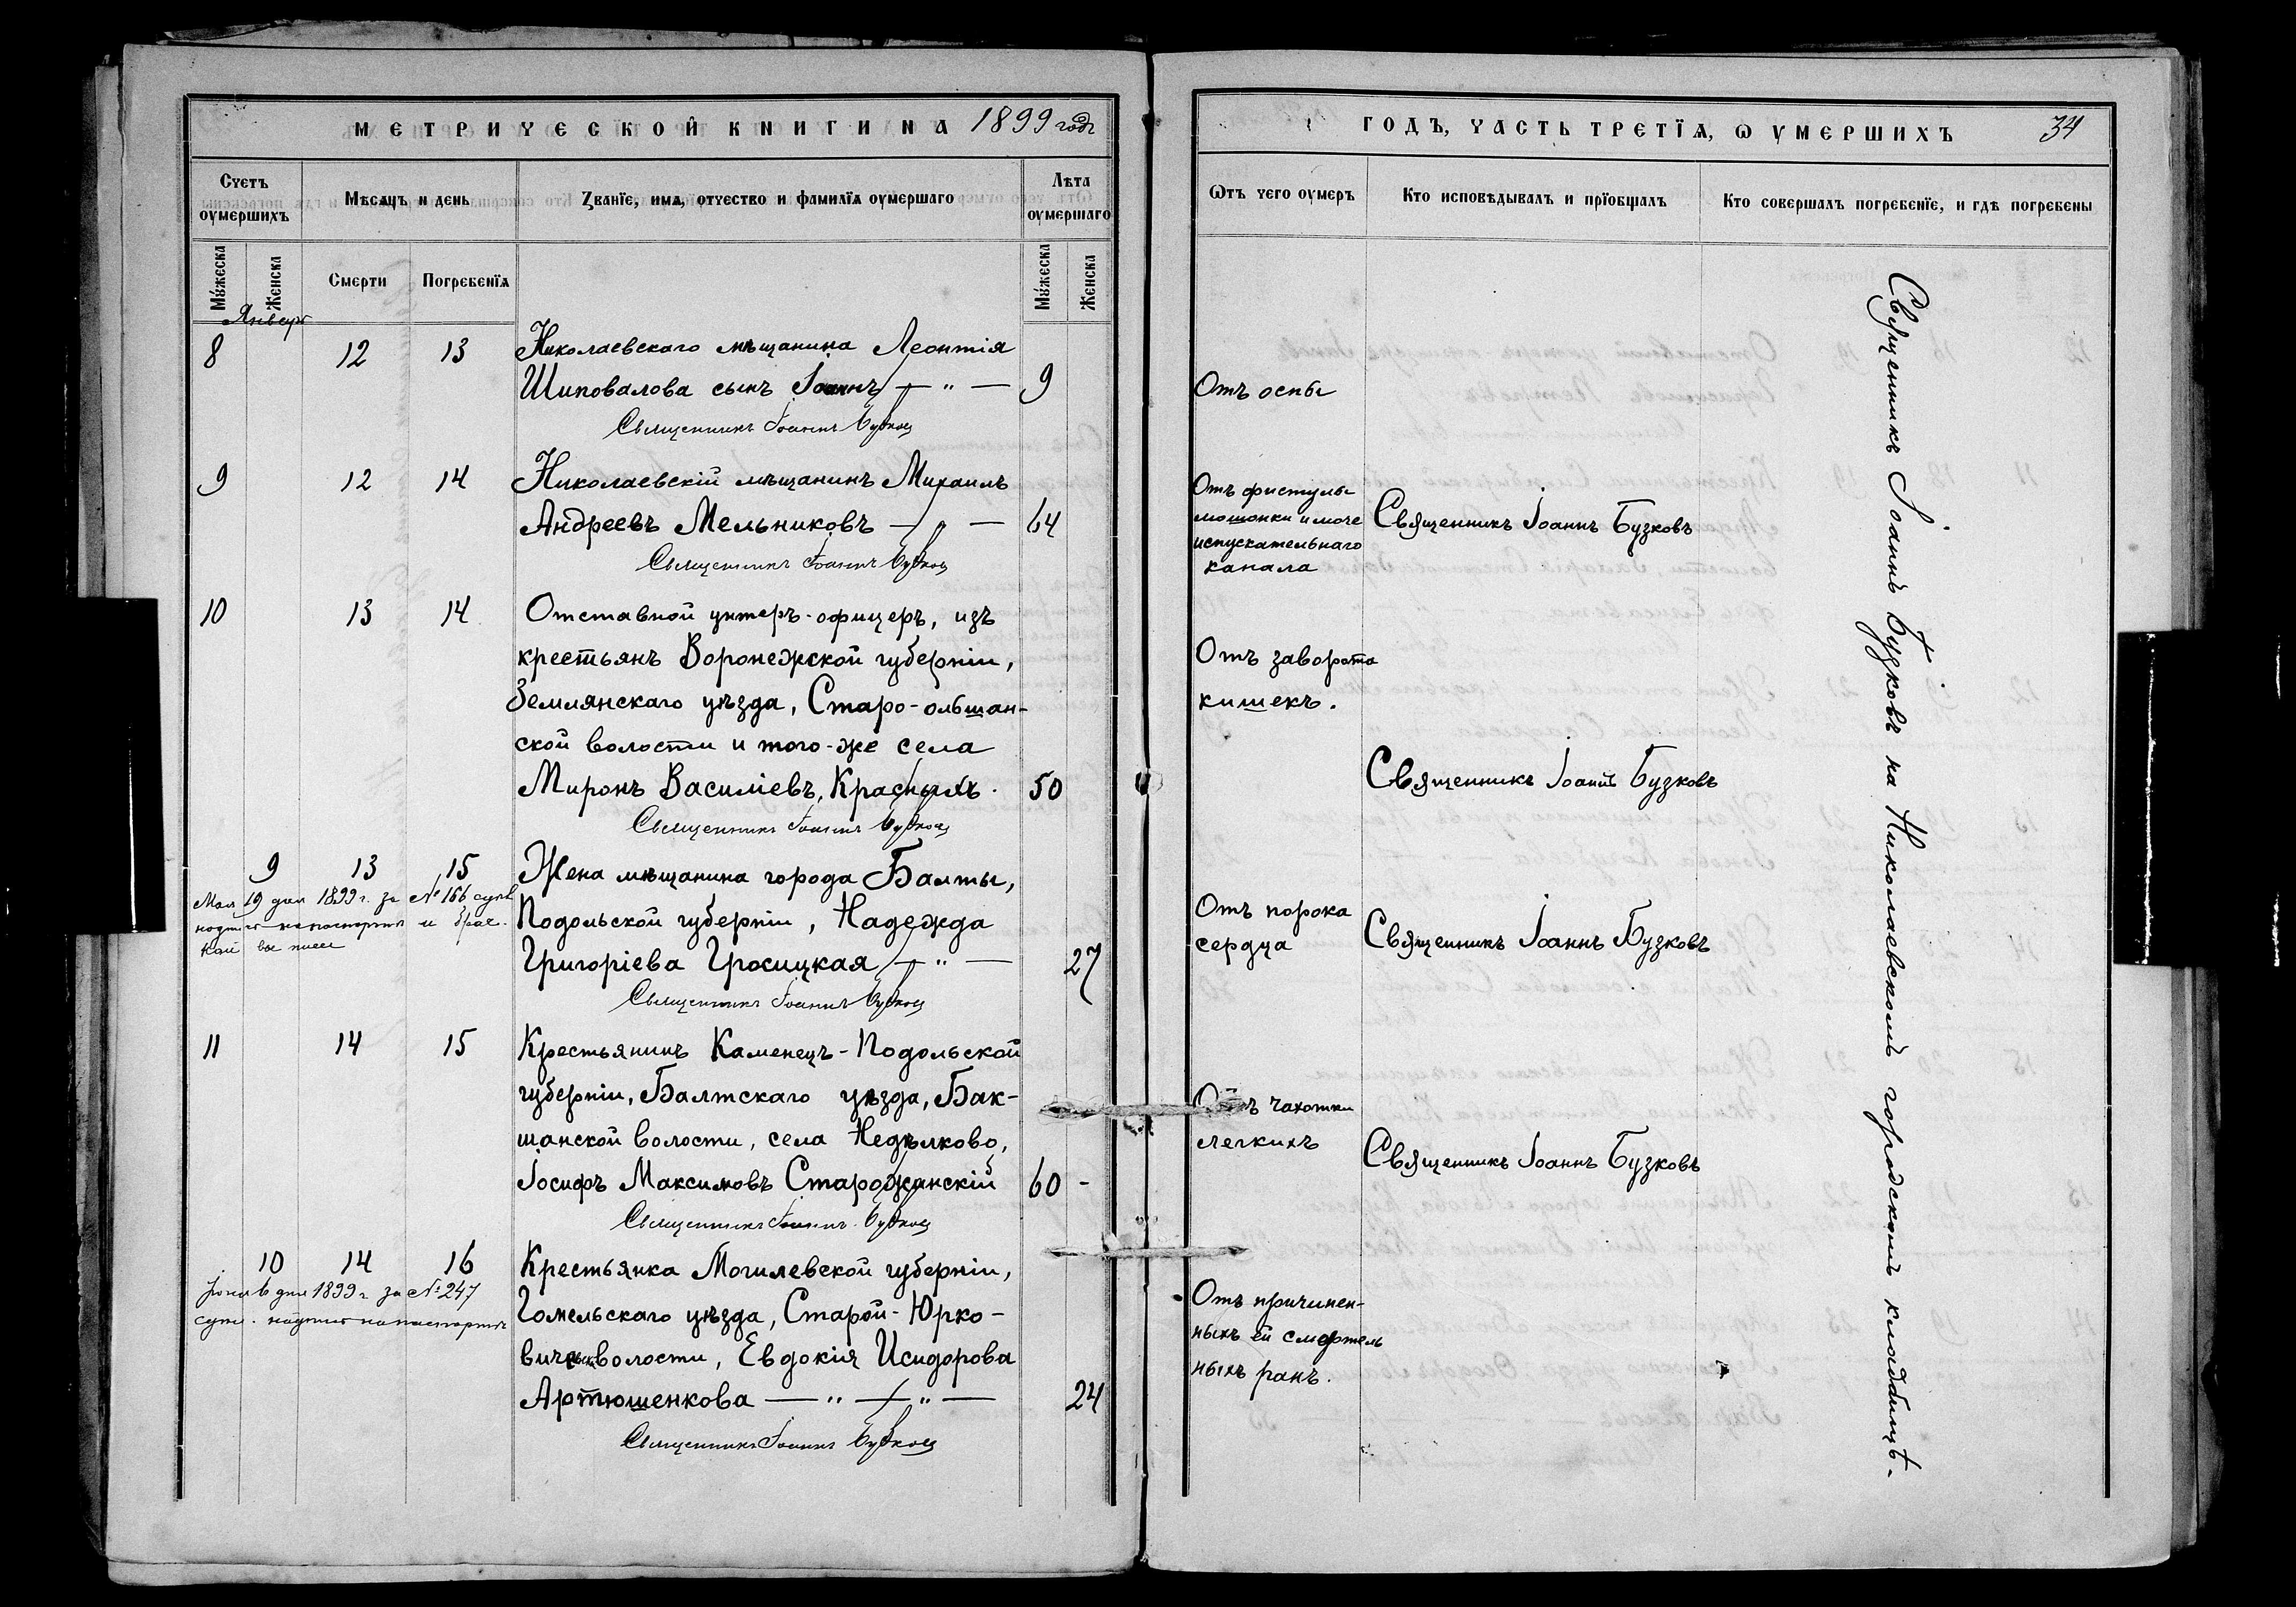 МЕТРИЧЕСКОЙ КНИГИ НА 1899 годъ
Счетъ оумершихъ
Мѣсяцъ и день
Званїе, имя, отчество и фамилїя оумершаго
Лѣта оумершаго
Мужеска
Женска
Смерти
Погребенїя
Мужеска
Женска
Январь
8 12 13 Николаевскаго мѣщанина Леонтія
Шиповалова сынъ Іоаннъ — " — 9
Священникъ Іоаннъ Бузковъ
9 12 14 Николаевскій мѣщанинъ Михаилъ
Андреевъ Мельниковъ — " — 64
Священникъ Іоаннъ Бузковъ
10 13 14 Отставной унтеръ-офицеръ, изъ
крестьянъ Воронежской губерніи,
Землянскаго уѣзда, Старо-ольшан-
ской волости и того-же села
Миронъ Василіевъ, Красныхъ. 50
Священникъ Іоаннъ Бузковъ
9 13 15 Жена мѣщанина города Балты,
Подольской губерніи, Надежда
Григоріева Гросицкая — " — 27
Священникъ Іоаннъ Бузковъ
Мая 19 дня 1899 г. за № 166
11 14 15 Крестьянинъ Каменецъ-Подольской
губерніи, Балтскаго уѣзда, Бак-
шанской волости, села Недѣлково,
Іосифъ Максимовъ Старожанскій 60 -
Священникъ Іоаннъ Бузковъ
10 14 16 Крестьянка Могилевской губерніи,
Гомельскаго уѣзда, Старой-Юрко-
вичской волости, Евдокія Исидорова
Артюшенкова — " — " — 24
Священникъ Іоаннъ Бузковъ
Іюня 6 дня 1899 г. за № 247
ГОДЪ, ЧАСТЬ ТРЕТЇЯ, Ѡ УМЕРШИХЪ 34
Ѿтъ чего оумеръ
Кто исповѣдывалъ и прїобщалъ
Кто совершалъ погребенїе, и гдѣ погребены
Отъ оспы
Отъ фистулы
мошонки и моче
испускательнаго
канала
Священникъ Іоаннъ Бузковъ
Отъ заворота
кишекъ.
Священникъ Іоаннъ Бузковъ
Отъ порока
сердца
Священникъ Іоаннъ Бузковъ
Отъ чахотки
легкихъ
Священникъ Іоаннъ Бузковъ
Отъ причинен-
ныхъ ей смертель
ныхъ ранъ.
Священникъ Іоаннъ Бузковъ на Николаевскомъ городскомъ кладбищѣ.